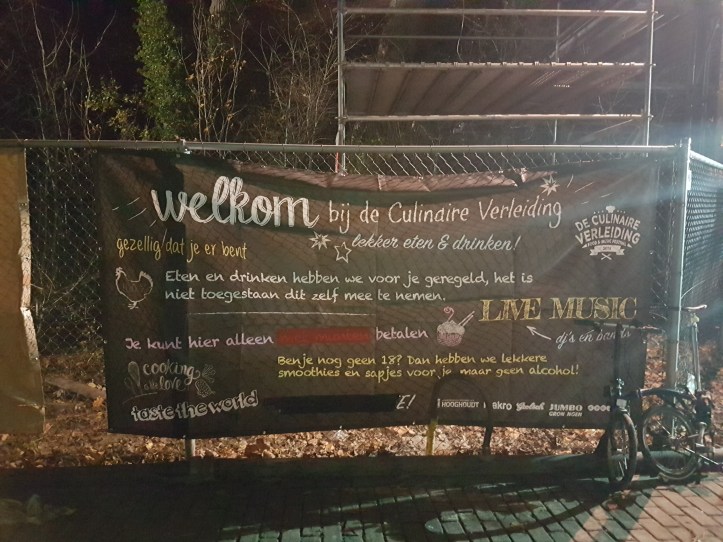 welkom bij de Culinaire Verleiding
gezellig dat je er bent
lekker eten & drinken!
DE CULINAIRE
VERLEIDING
FOOD & MUSIC FESTIVAL
Eten en drinken hebben we voor je geregeld, het is
niet toegestaan dit zelf mee te nemen.
LIVE MUSIC
dj's en bands
Je kunt hier alleen betalen
Benje nog geen 18? Dan hebben we lekkere
smoothies en sapjes voor je maar geen alcohol!
cooking
love
taste the world
E!
HOOGHOUDT akro Grolsch JUMBO